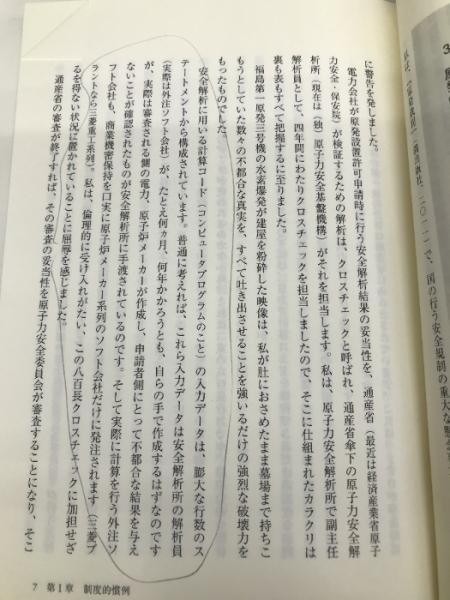 に警告を発しました。
電力会社が原発設置許可申請時に行う安全解析結果の妥当性を、通産省（最近は経済産業省原子
力安全・保安院）が検証するための解析は、クロスチェックと呼ばれ、通産省傘下の原子力安全解
析所（現在は（独）原子力安全基盤機構）がそれを担当します。私は、原子力安全解析所で副主任
解析員として、四年間にわたりクロスチェックを担当しましたので、そこに仕組まれたカラクリは
裏も表もすべて把握するに至りました。
福島第一原発三号機の水素爆発が建屋を粉砕した映像は、私が肚におさめたまま墓場まで持ちこ
もうとしていた数々の不都合な真実を、すべて吐き出させることを強いるだけの強烈な破壊力を
もったものでした。
安全解析に用いる計算コード（コンピュータプログラムのこと）の入力データは、膨大な行数のス
テートメントから構成されています。普通に考えれば、これら入力データは安全解析所の解析員
（実際は外注ソフト会社）が、たとえ何ヵ月、何年かかろうとも、自らの手で作成するはずなのです
が、実際は審査される側の電力、原子炉メーカーが作成し、申請者側にとって不都合な結果を与え
ないことが確認されたものが安全解析所に手渡されているのです。そして実際に計算を行う外注ソ
フト会社も、商業機密保持を口実に原子炉メーカー系列のソフト会社だけに発注されます（三菱プ
ラントなら三菱重工系列）。私は、倫理的に受け入れがたい、この八百長クロスチェックに加担せざ
るを得ない状況に置かれていることに屈辱を感じました。
通産省の審査が終了すれば、その審査の妥当性を原子力安全委員会が審査することになり、そこ
7 第Ⅰ章 制度的慣例